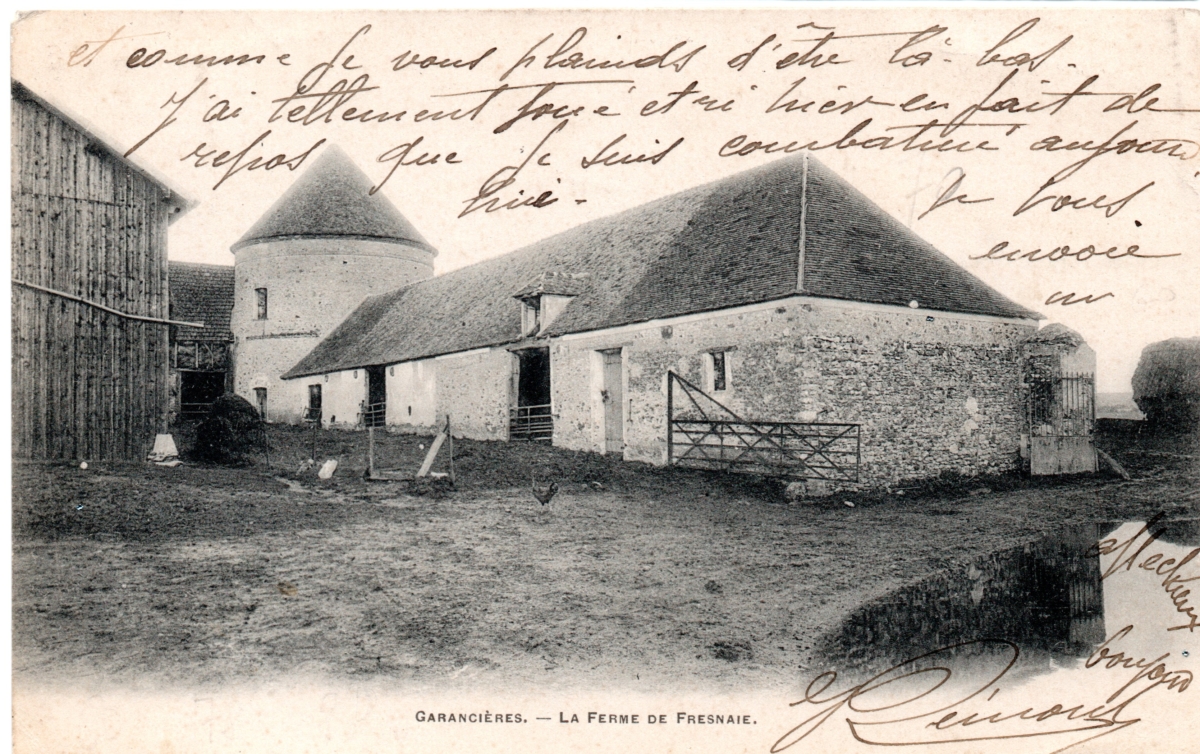 et comme je vous plainds d'être là-bas.
J'ai tellement joué et ri hier en fait de
repos que je suis courbaturé aujourd
hui.
Je vous
envoie
un
affectueux
bonjour
GARANCIÈRES. — LA FERME DE FRESNAIE.